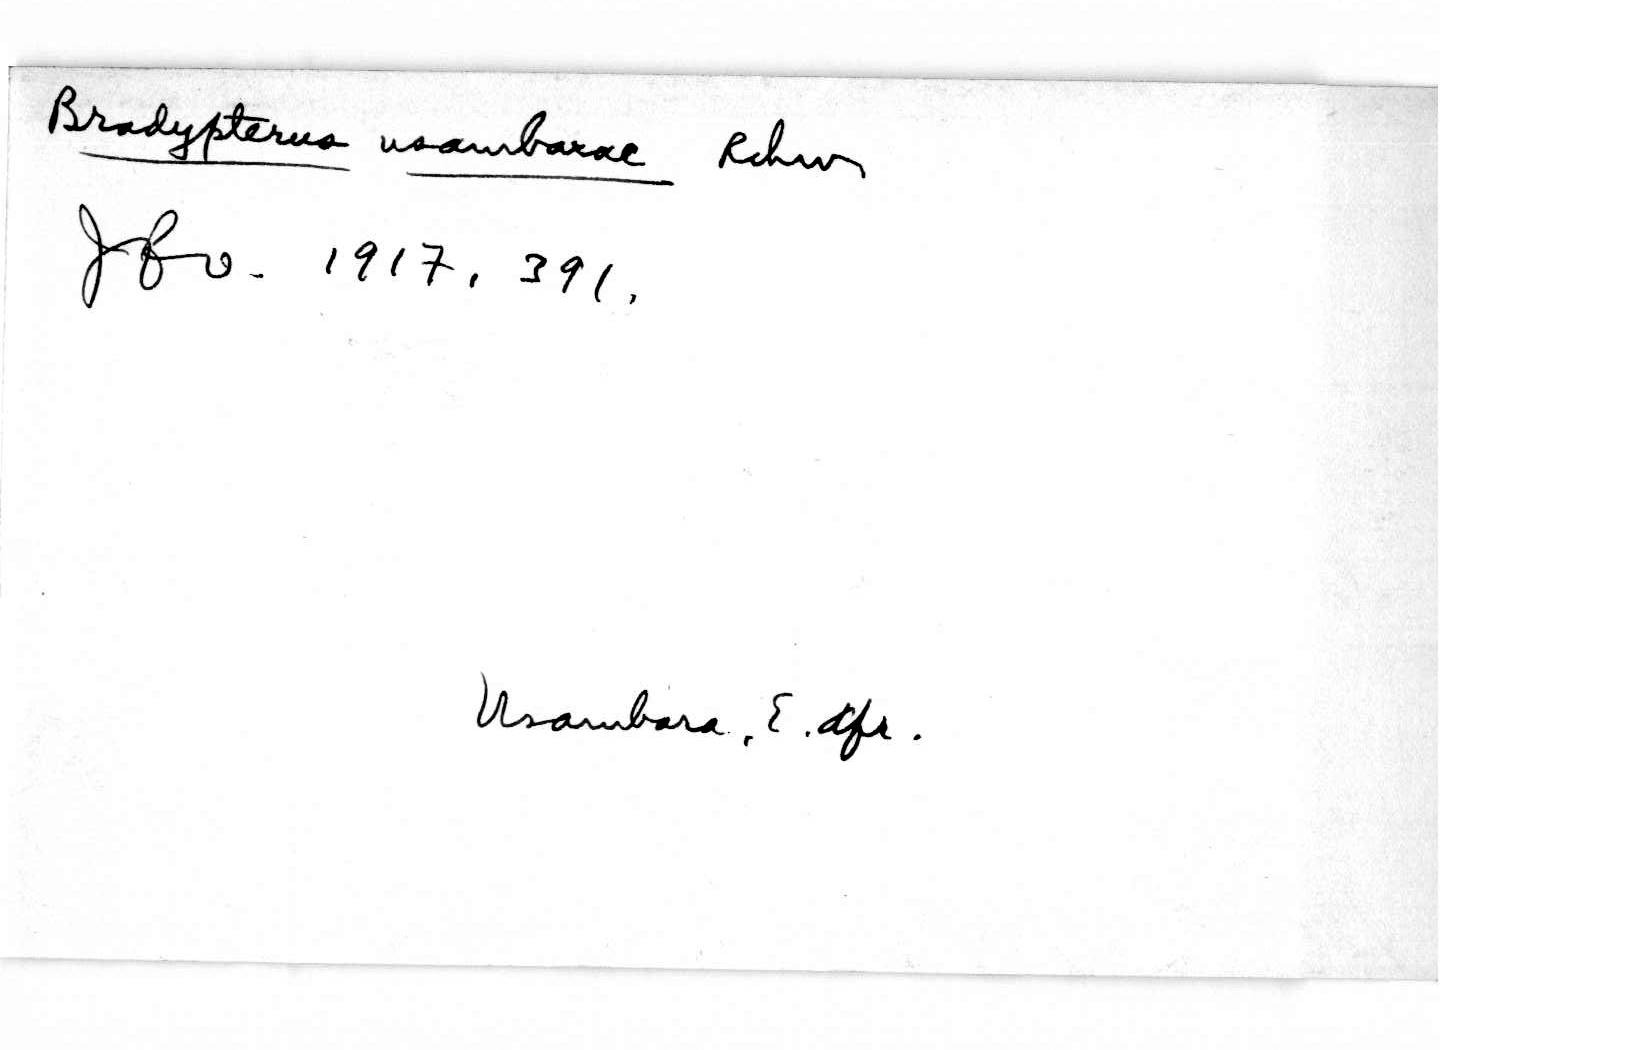 Bradypterus usambarae Rchw
JfO. 1917, 391.
Usambara, E. Afr.